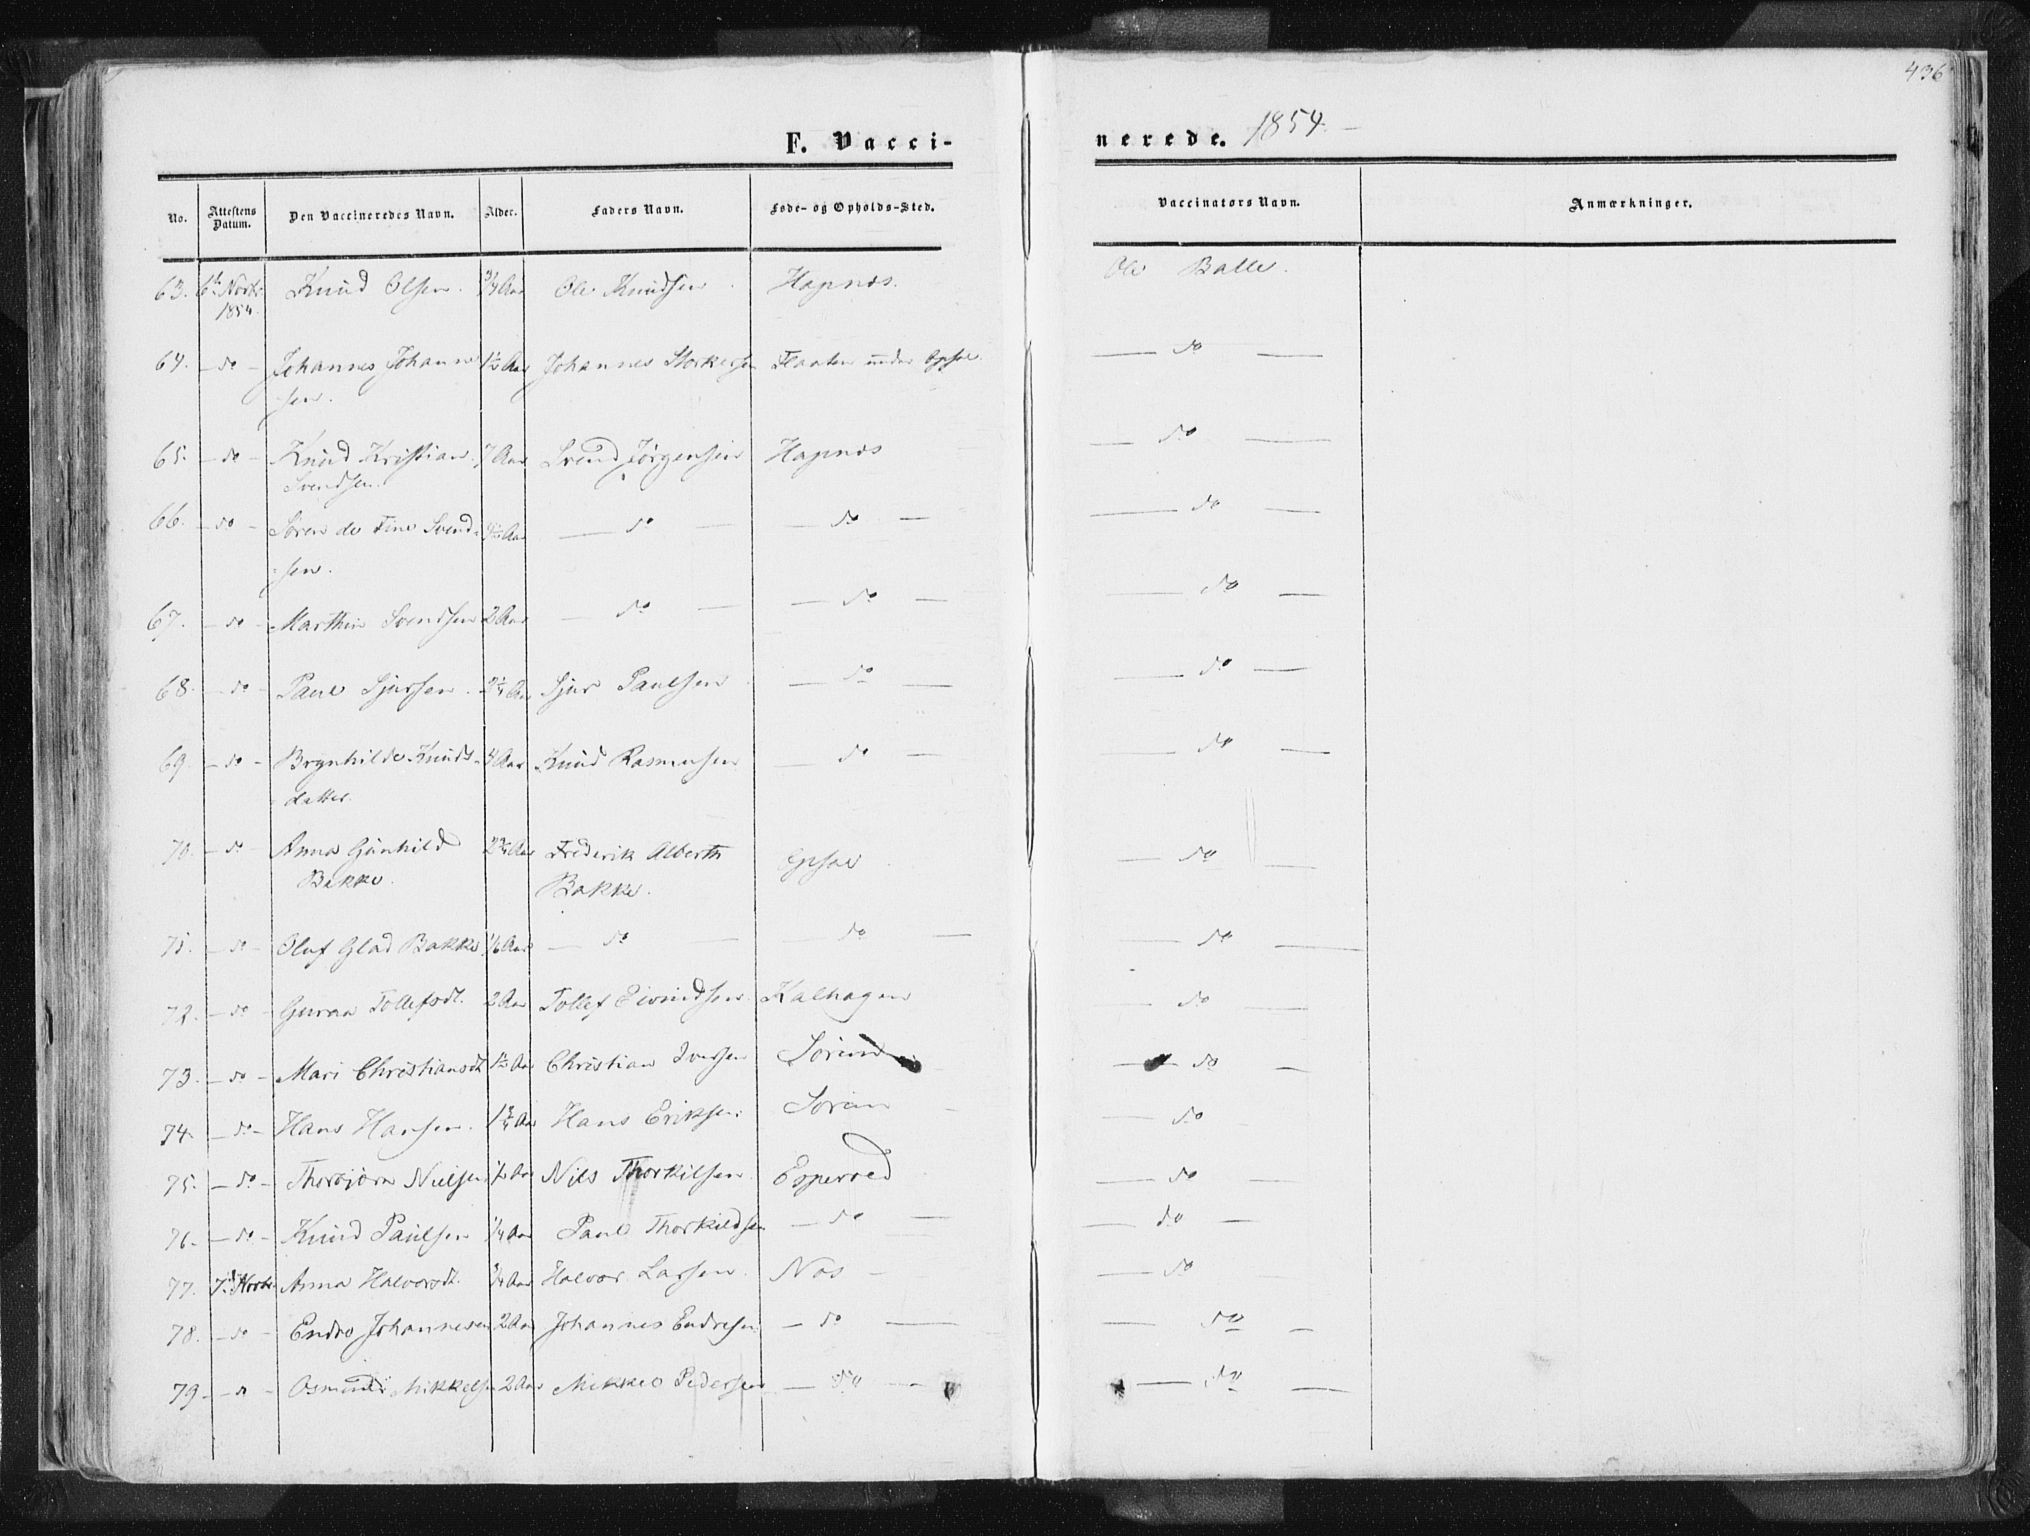 436
F. Vacci-
nerede. 1854.
No. Attestens Datum. Den Vaccineredes Navn. Alder. Faders Navn. Føde- og Opholds-Sted. Vaccinators Navn. Anmærkninger.
63. 6t Novbr 1854. Knud Olsen. 3/4 Aar Ole Knudsen Hapnæs. Ole Balle.
64. — do — Johannes Johanne Aar Johannes Storkersen Flaaten under Opsal — do —
sen.
65. — do — Knud Kristian 7 Aar Svend Jørgensen Hapnæs — do —
Svendsen.
66. — do — Søren de Fine Svend- Aar — do — — do — — do —
sen.
67. — do — Marthin Svendsen 2 Aar — do — — do — — do —
68. — do — Paul Sjursen. Aar Sjur Paulsen — do — — do —
69. — do — Brynhilde Knuds- 4 Aar Knud Rasmusen — do — — do —
datter.
70. — do — Anna Gunhild Aar Frederik Alberth Opsal — do —
Bakke. Bakke.
71. — do — Oluf Glad Bakke 1/6 Aar — do — — do — — do —
72. — do — Guroa Tollefsdt. 2 Aar Tollef Eivindsen Kalhagen — do —
73. — do — Mari Christiansdt. 1 1/2 Aar Christian Iversen — do —
74. — do — Hans Hansen. 1 3/4 Aar Hans Eriksen. — do —
75. — do — Thorbjørn Nielsen 1/2 Aar Nils Thorkilsen Esperoed — do —
76. — do — Knud Paulsen 1/4 Aar Paul Thorkildsen — do — — do —
77. 7t Novbr Anna Halvorsdt. 1/4 Aar Halvor Larsen. Næs — — do —
78. — do — Endre Johannesen 2 Aar Johannes Endresen — do — — do —
79 — do — Osmund Mikkelsen 2 Aar Mikkel Pedersen — do — — do —